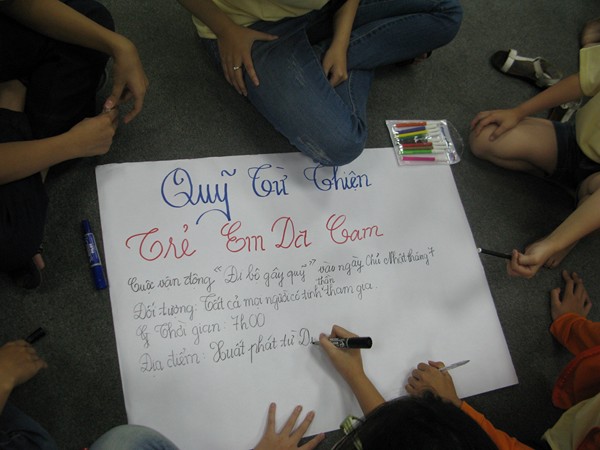 Quỹ Từ Thiện
Trẻ Em Da Cam
Cuộc vận động "Đi bộ gây quỹ" vào ngày Chủ Nhật tháng 7
Đối tượng: Tất cả mọi người có tinh thần tham gia.
Thời gian: 7h00
Địa điểm: Xuất phát từ D